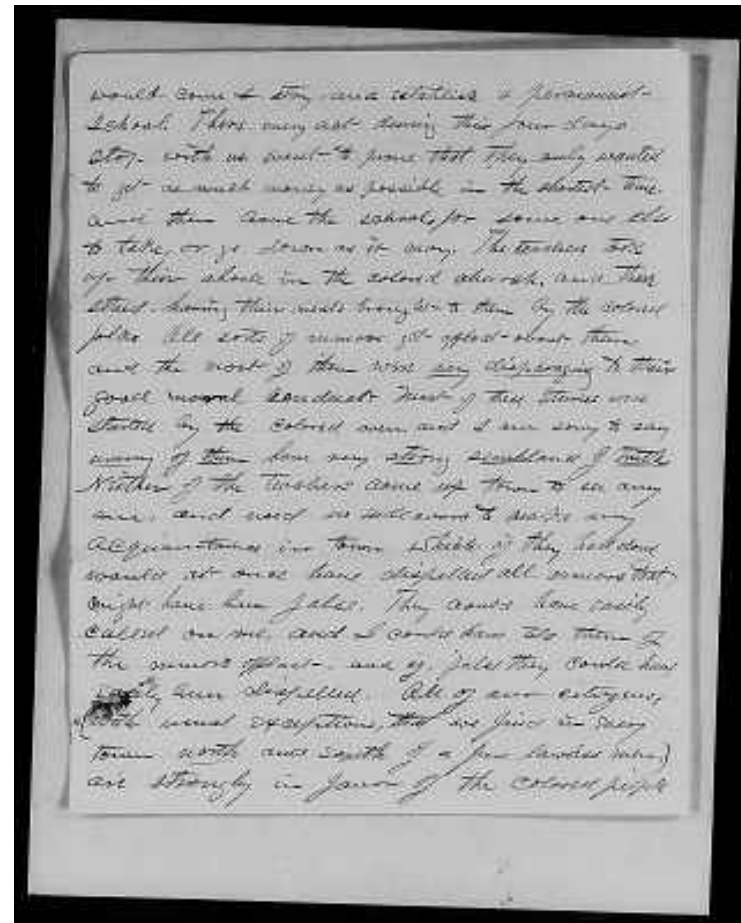 would come & stay and establish a permanent
School. There every act during their four days
stay with us went to prove that they only wanted
to get as much money as possible in the shortest time
and then leave the school, for some one else
to take, or go down as it may. The teachers took
up their abode in the colored church, and there
staid having their meals brought to them by the colored
folks All sorts of rumors got afloat about them
and the most of them were very disparaging to their
good moral conduct Most of these stories were
started by the colored men and I am sorry to say
many of them have very strong semblance of truth
Neither of the teachers came up town to see any
one. and used no to make any
acquaintance in town which if they had done
would at once have dispelled all rumors that
might have been false. They could have easily
called on me, and I could have told them of
the rumors afloat. and if false they could have
easily been dispelled. All of our citizens,
(with usual exceptions, that we find in every
town north and South of a few lawless men)
are strongly in favor of the colored people